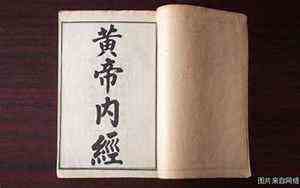 黄帝内經
图片来自网络